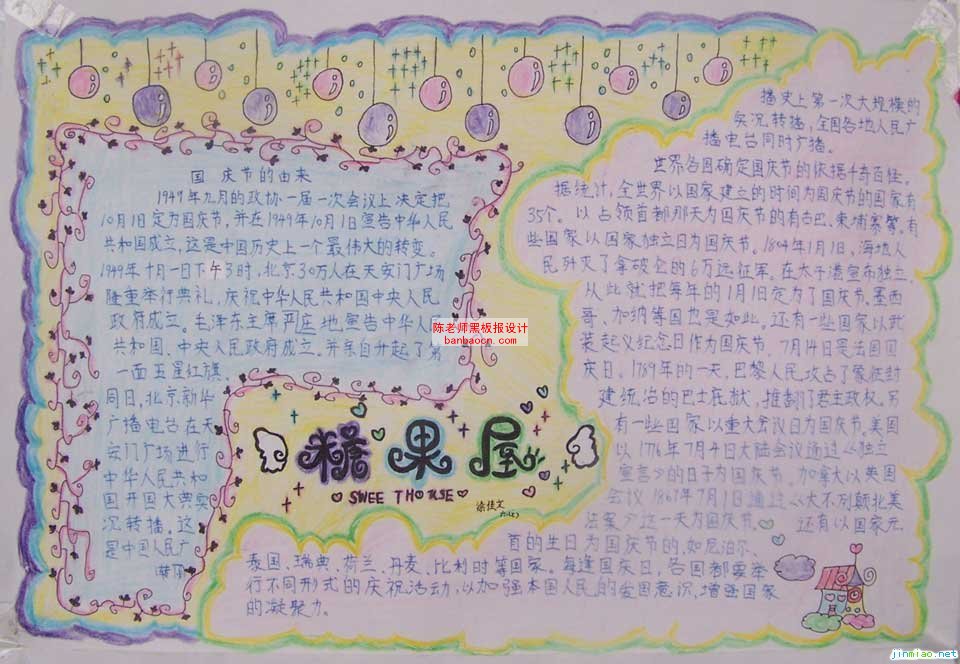 国庆节的由来
1949年九月的政协一届一次会议上决定把
10月1日定为国庆节，并在1949年10月1日宣告中华人民
共和国成立，这是中国历史上一个最伟大的转变。
1949年十月一日下午3时，北京30万人在天安门广场
隆重举行典礼，庆祝中华人民共和国中央人民
政府成立。毛泽东主席严庄地宣告中华人民
共和国、中央人民政府成立。并亲自升起了第
一面五星红旗
同日，北京新华
广播电台在天
安门广场进行
中华人民共和
国开国大典实
况转播。这
是中国人民广
播史上第一次大规模的
实况转播，全国各地人民广
播电台同时广播。
世界各国确定国庆节的依据千奇百怪。
据统计，全世界以国家建立的时间为国庆节的国家有
35个。以占领首都那天为国庆节的有古巴、柬埔寨等。有
些国家以国家独立日为国庆节。1804年1月1日，海地人
民歼灭了拿破仑的6万远征军。在太子港宣布独立，
从此就把每年的1月1日定为了国庆节。墨西
哥、加纳等国也是如此。还有一些国家以武
装起义纪念日作为国庆节。7月14日是法国国
庆日。1789年的一天，巴黎人民攻占了象征封
建统治的巴士底狱，推翻了君主政权。另
有一些国家以重大会议日为国庆节。美国
以1776年7月4日大陆会议通过《独立
宣言》的日子为国庆节。加拿大以英国
会议1867年7月1日通过《大不列颠北美
法案》这一天为国庆节。还有以国家元
首的生日为国庆节的，如尼泊尔、
泰国、瑞典、荷兰、丹麦、比利时等国家。每逢国庆日，各国都要举
行不同形式的庆祝活动，以加强本国人民的爱国意识，增强国家
的凝聚力。
糖果屋
SWEE THOUSE
陈老师黑板报设计
banbaocn.com
jinmiao.net